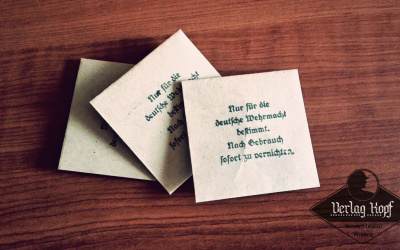 Nur für die
deutsche Wehrmacht
bestimmt.
Nach Gebrauch
sofort zu vernichten.
Nur für die
deutsche Wehrmacht
bestimmt.
Nach
sofort
Verlag Kopf